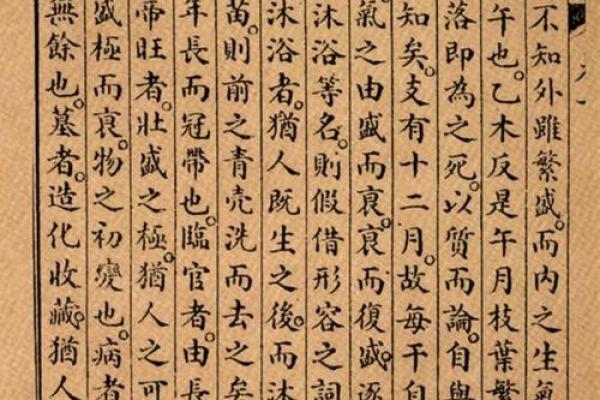 不知外雖繁盛。而内之生氣
午也。乙木反是午月枝葉繁
落即為之死。以質而論。自與
知矣。支有十二月。故每干自
氣之由盛而衰。衰而復盛。逐
沐浴等名。則假借形容之詞
沐浴者。猶人既生之後。而沐
苗。則前之青壳洗而去之矣
年長而冠帶也。臨官者。由長
帝旺者。壯盛之極。猶人之可
盛極而衰。物之初變也。病者
無餘也。墓者。造化收藏。猶人